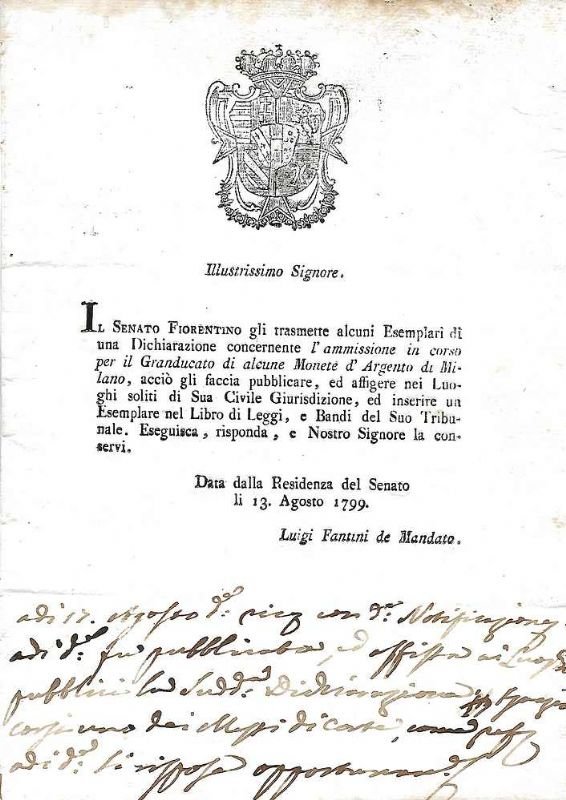 Illustrissimo Signore.
IL SENATO FIORENTINO gli trasmette alcuni Esemplari di
una Dichiarazione concernente l'ammissione in corso
per il Granducato di alcune Monete d'Argento di Mi-
lano, acciò gli faccia pubblicare, ed affigere nei Luo-
ghi soliti di Sua Civile Giurisdizione, ed inserire un
Esemplare nel Libro di Leggi, e Bandi del Suo Tribu-
nale. Eseguisca, risponda, e Nostro Signore la con-
servi.
Data dalla Residenza del Senato
li 13. Agosto 1799.
Luigi Fantini de Mandato.
adi 17. Agosto d.° con d.ª Notificazione
adi d.° fu pubblicata, ed affissa ai Luoghi
pubblici la Sudd.ª Dichiarazione
uno dei Messi di Corte, come
adi d.° si rispose